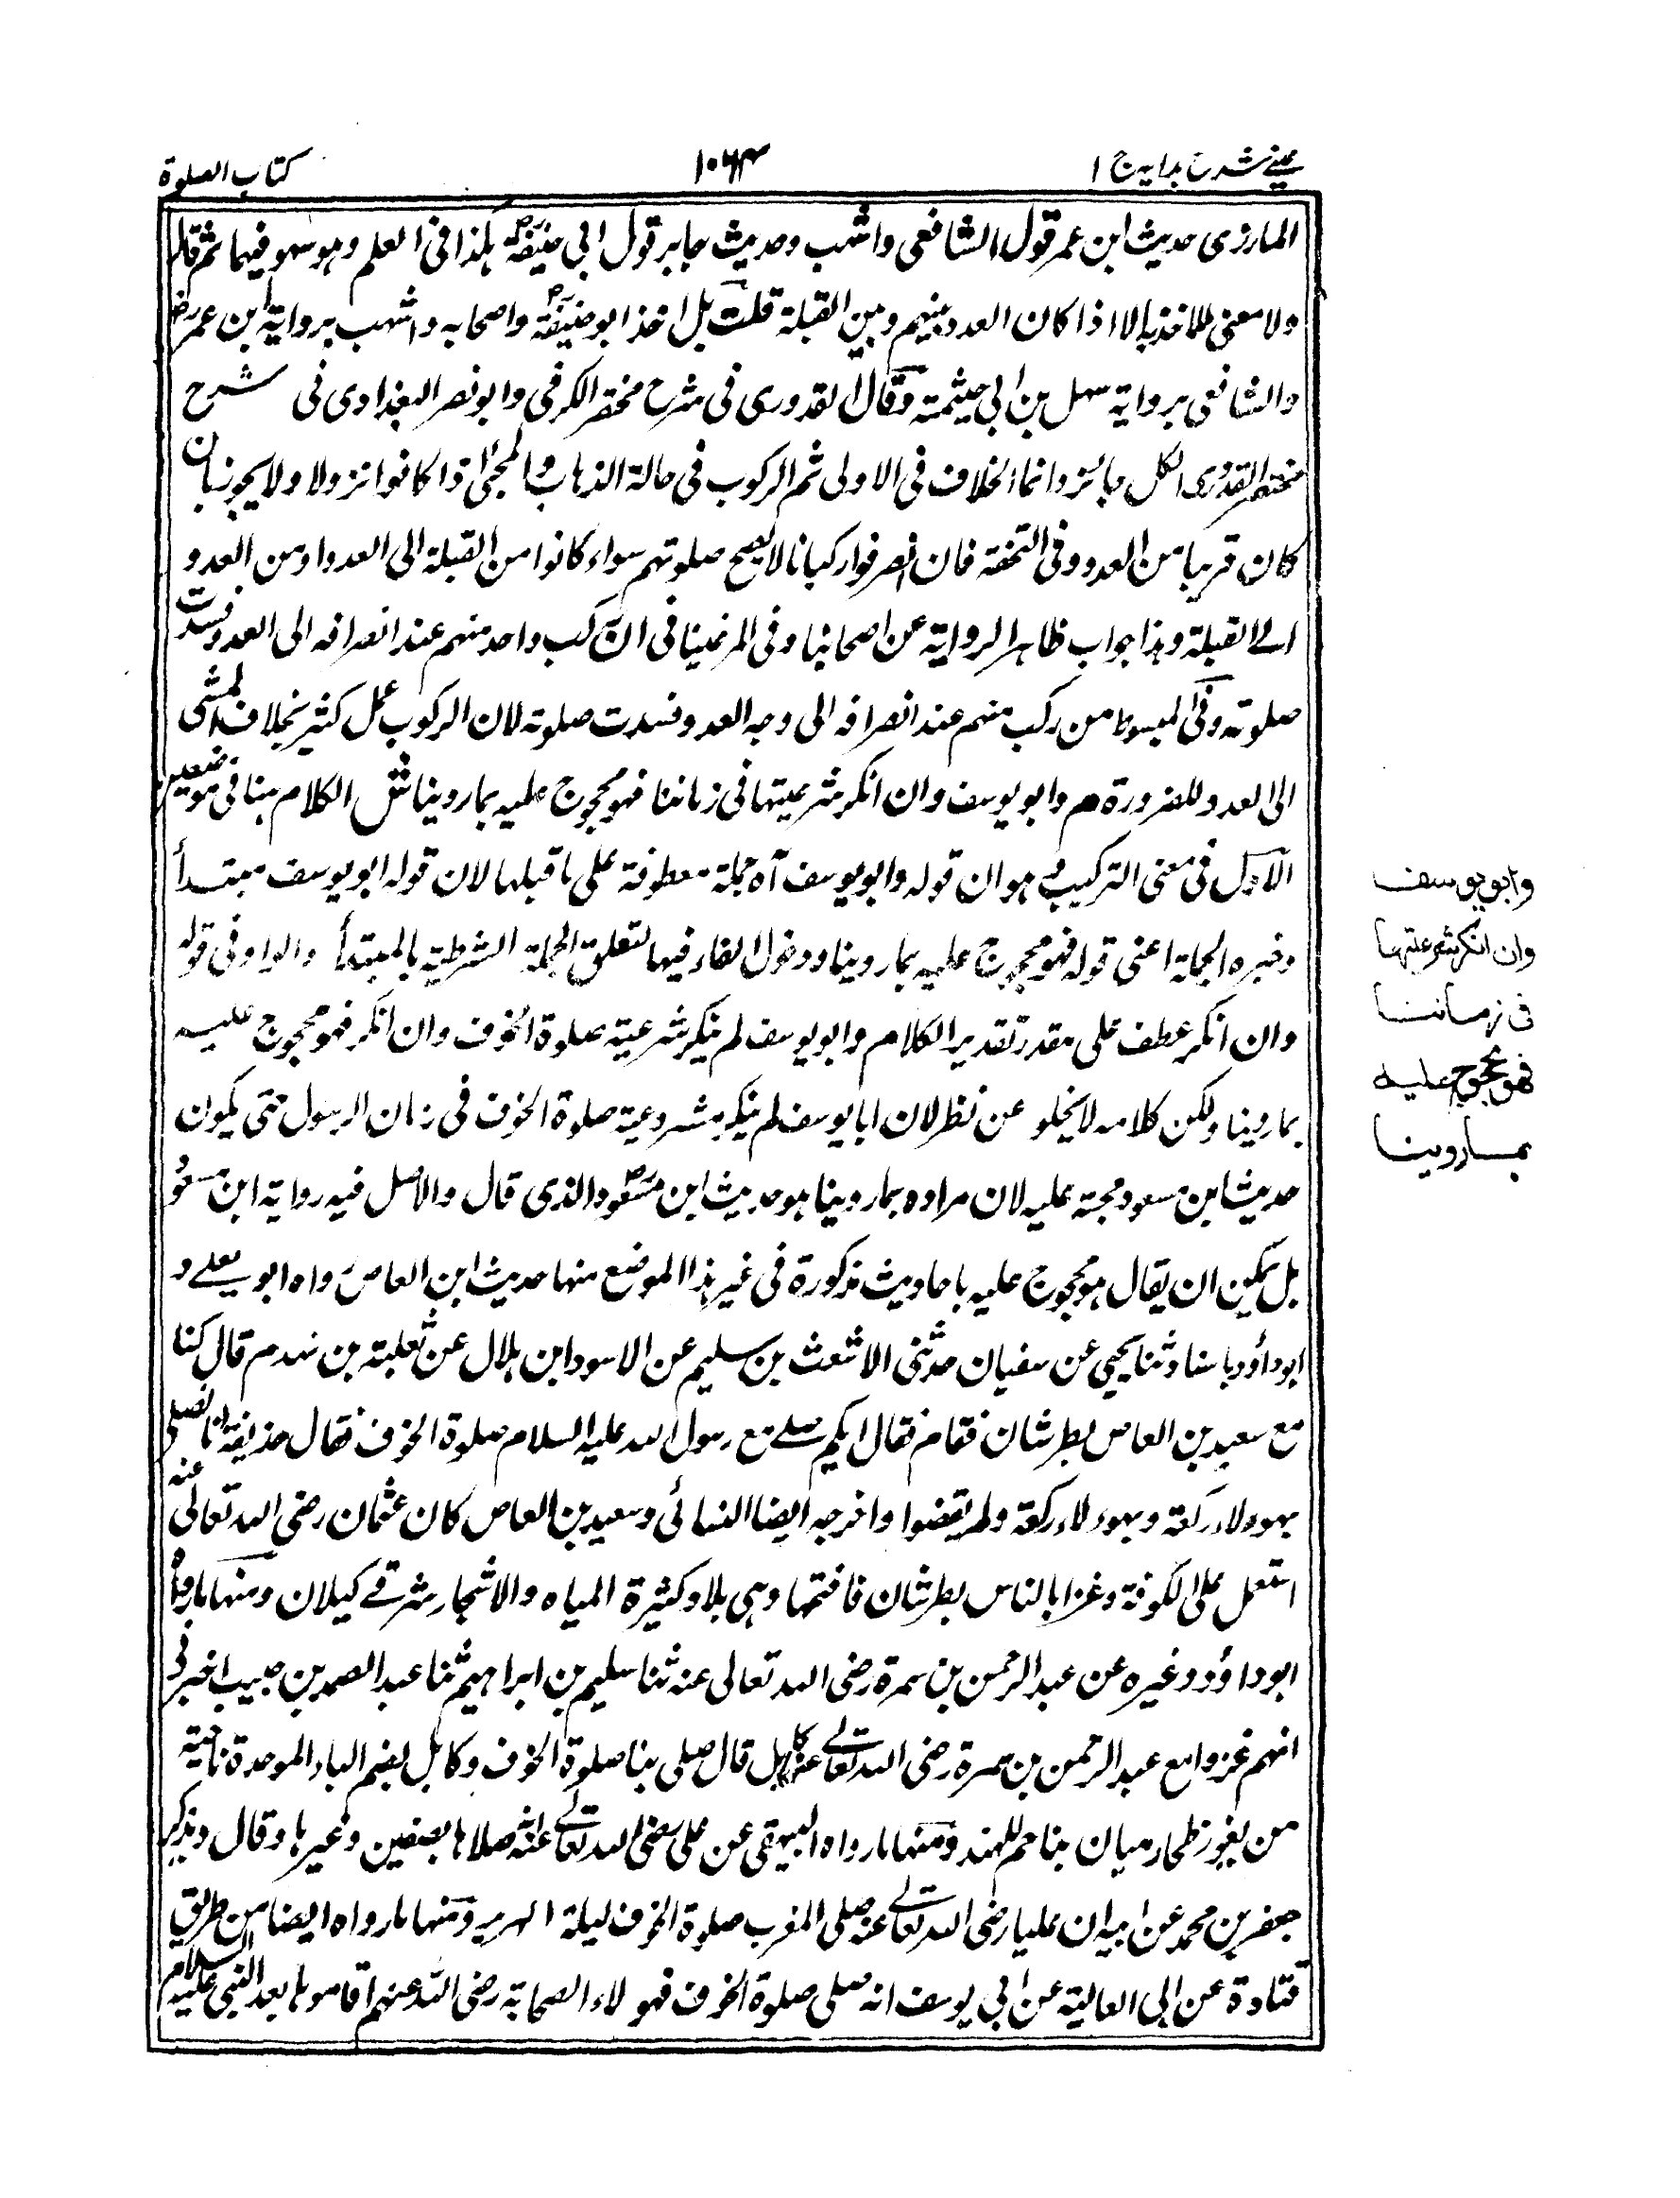 عینے شرح ہدایہ ج ۱
۱۰۶۴
كتاب الصلوة
المازری حديث ابن عمر قول الشافعى واشهب وحديث جابر قول ابى حنيفةؒ هكذا فى العلم وهو سهو فيهما ثم قال
ولا معنى للاخذ بها الا اذا كان العدو بينهم وبين القبلة قلت بل اخذ ابو حنيفةؒ واصحابه واشهب برواية ابن عمرؓ
والشافعى برواية سهل بن ابى حيثمة وقال القدورى فى شرح مختصر الكرخى وابو نصر البغدادى فى شرح
مختصر القدورى الكل جائز وانما الخلاف فى الاولى ثم الركوب فى حالة الذهاب والمجئ اذا كانوا نزولا ولا يجوز بان
كان قريبا من العدو وفى التحفة فان انصرفوا ركبانا لا يصح صلوتهم سواء كانوا من القبلة الى العدو او من العدو
الے القبلة وهذا جواب ظاهر الرواية عن اصحابنا وفى المرغينانى ان ركب واحد منهم عند انصرافه الى العدو فسدت
صلوته وفى المبسوط من ركب منهم عند انصرافه الى وجه العدو فسدت صلوته لان الركوب عمل كثير بخلاف المشى
الى العدو للضرورة م وابو يوسف وان انكر شرعيتها فى زماننا فهو محجوج عليه بما روينا ش الكلام هنا فى موضعين
الاول فى معنى التركيب وهو ان قوله وابو يوسف آه جملة معطوفة على ما قبلها لان قوله ابو يوسف مبتدأ
وخبره الجملة اعنى قوله فهو محجوج عليه بما روينا ودخول الفاء فيها لتعلق الجملة الشرطية بالمبتدأ والواو فى قوله
وان انكر عطف على مقدر تقدير الكلام وابو يوسف لم ينكر شرعية صلوة الخوف وان انكر فهو محجوج عليه
بما روينا ولكن كلامه لا يخلو عن نظر لان ابا يوسف لم ينكر مشروعية صلوة الخوف فى زمان الرسول حتى يكون
حديث ابن مسعود حجة عليه لان مراده بما روينا هو حديث ابن مسعودؓ والذى قال والاصل فيه رواية ابن مسعود
بل يمكن ان يقال هو محجوج عليه باحاديث مذكورة فى غير هذا الموضع منها حديث ابن العاص رواه ابو يعلے و
ابو داؤد باسناد ثنا يحيى عن سفيان حدثنى الاشعث بن سليم عن الاسود ابن هلال عن ثعلبة بن زهدم قال كنا
مع سعيد بن العاص بطبرستان فقام فقال ايكم صلے مع رسول الله عليه السلام صلوة الخوف فقال حذيفة انا فصلى
بهؤلاء ركعة وبهؤلاء ركعة ولم يقضوا واخرجه ايضا النسائى وسعيد بن العاص كان عثمان رضى الله تعالى عنه
استعمل على الكوفة وغزا بالناس بطبرستان فافتتحها وهى بلاد كثيرة المياه والاشجار شرقے كيلان ومنها ما رواه
ابو داؤد وغيره عن عبد الرحمن بن سمرة رضى الله تعالى عنه ثنا سليم بن ابراهيم ثنا عبد الصمد بن حبيب اخبرنى
انهم غزوا مع عبد الرحمن بن سمرة رضى الله تعالے عنه كابل قال صلى بنا صلوة الخوف وكابل بضم الباء الموحدة ناحية
من ثغور طخارميان بناحم للهند ومنها ما رواه البيهقى عن على رضى الله تعالے عنه انه صلاها بصفين وغيرها وقال ويذكر
جعفر بن محمد عن ابيه ان عليا رضى الله تعالے عنه صلى المغرب صلوة الخوف ليلة الهرير ومنها ما رواه ايضا من طريق
قتادة عن ابى العالية عن ابى يوسف انه صلى صلوة الخوف فهولاء الصحابة رضى الله عنهم اقاموها بعد النبى عليه السلام
وابو يوسف
وان انكر شرعيتها
فى زماننا
فهو محجوج عليه
بما روينا